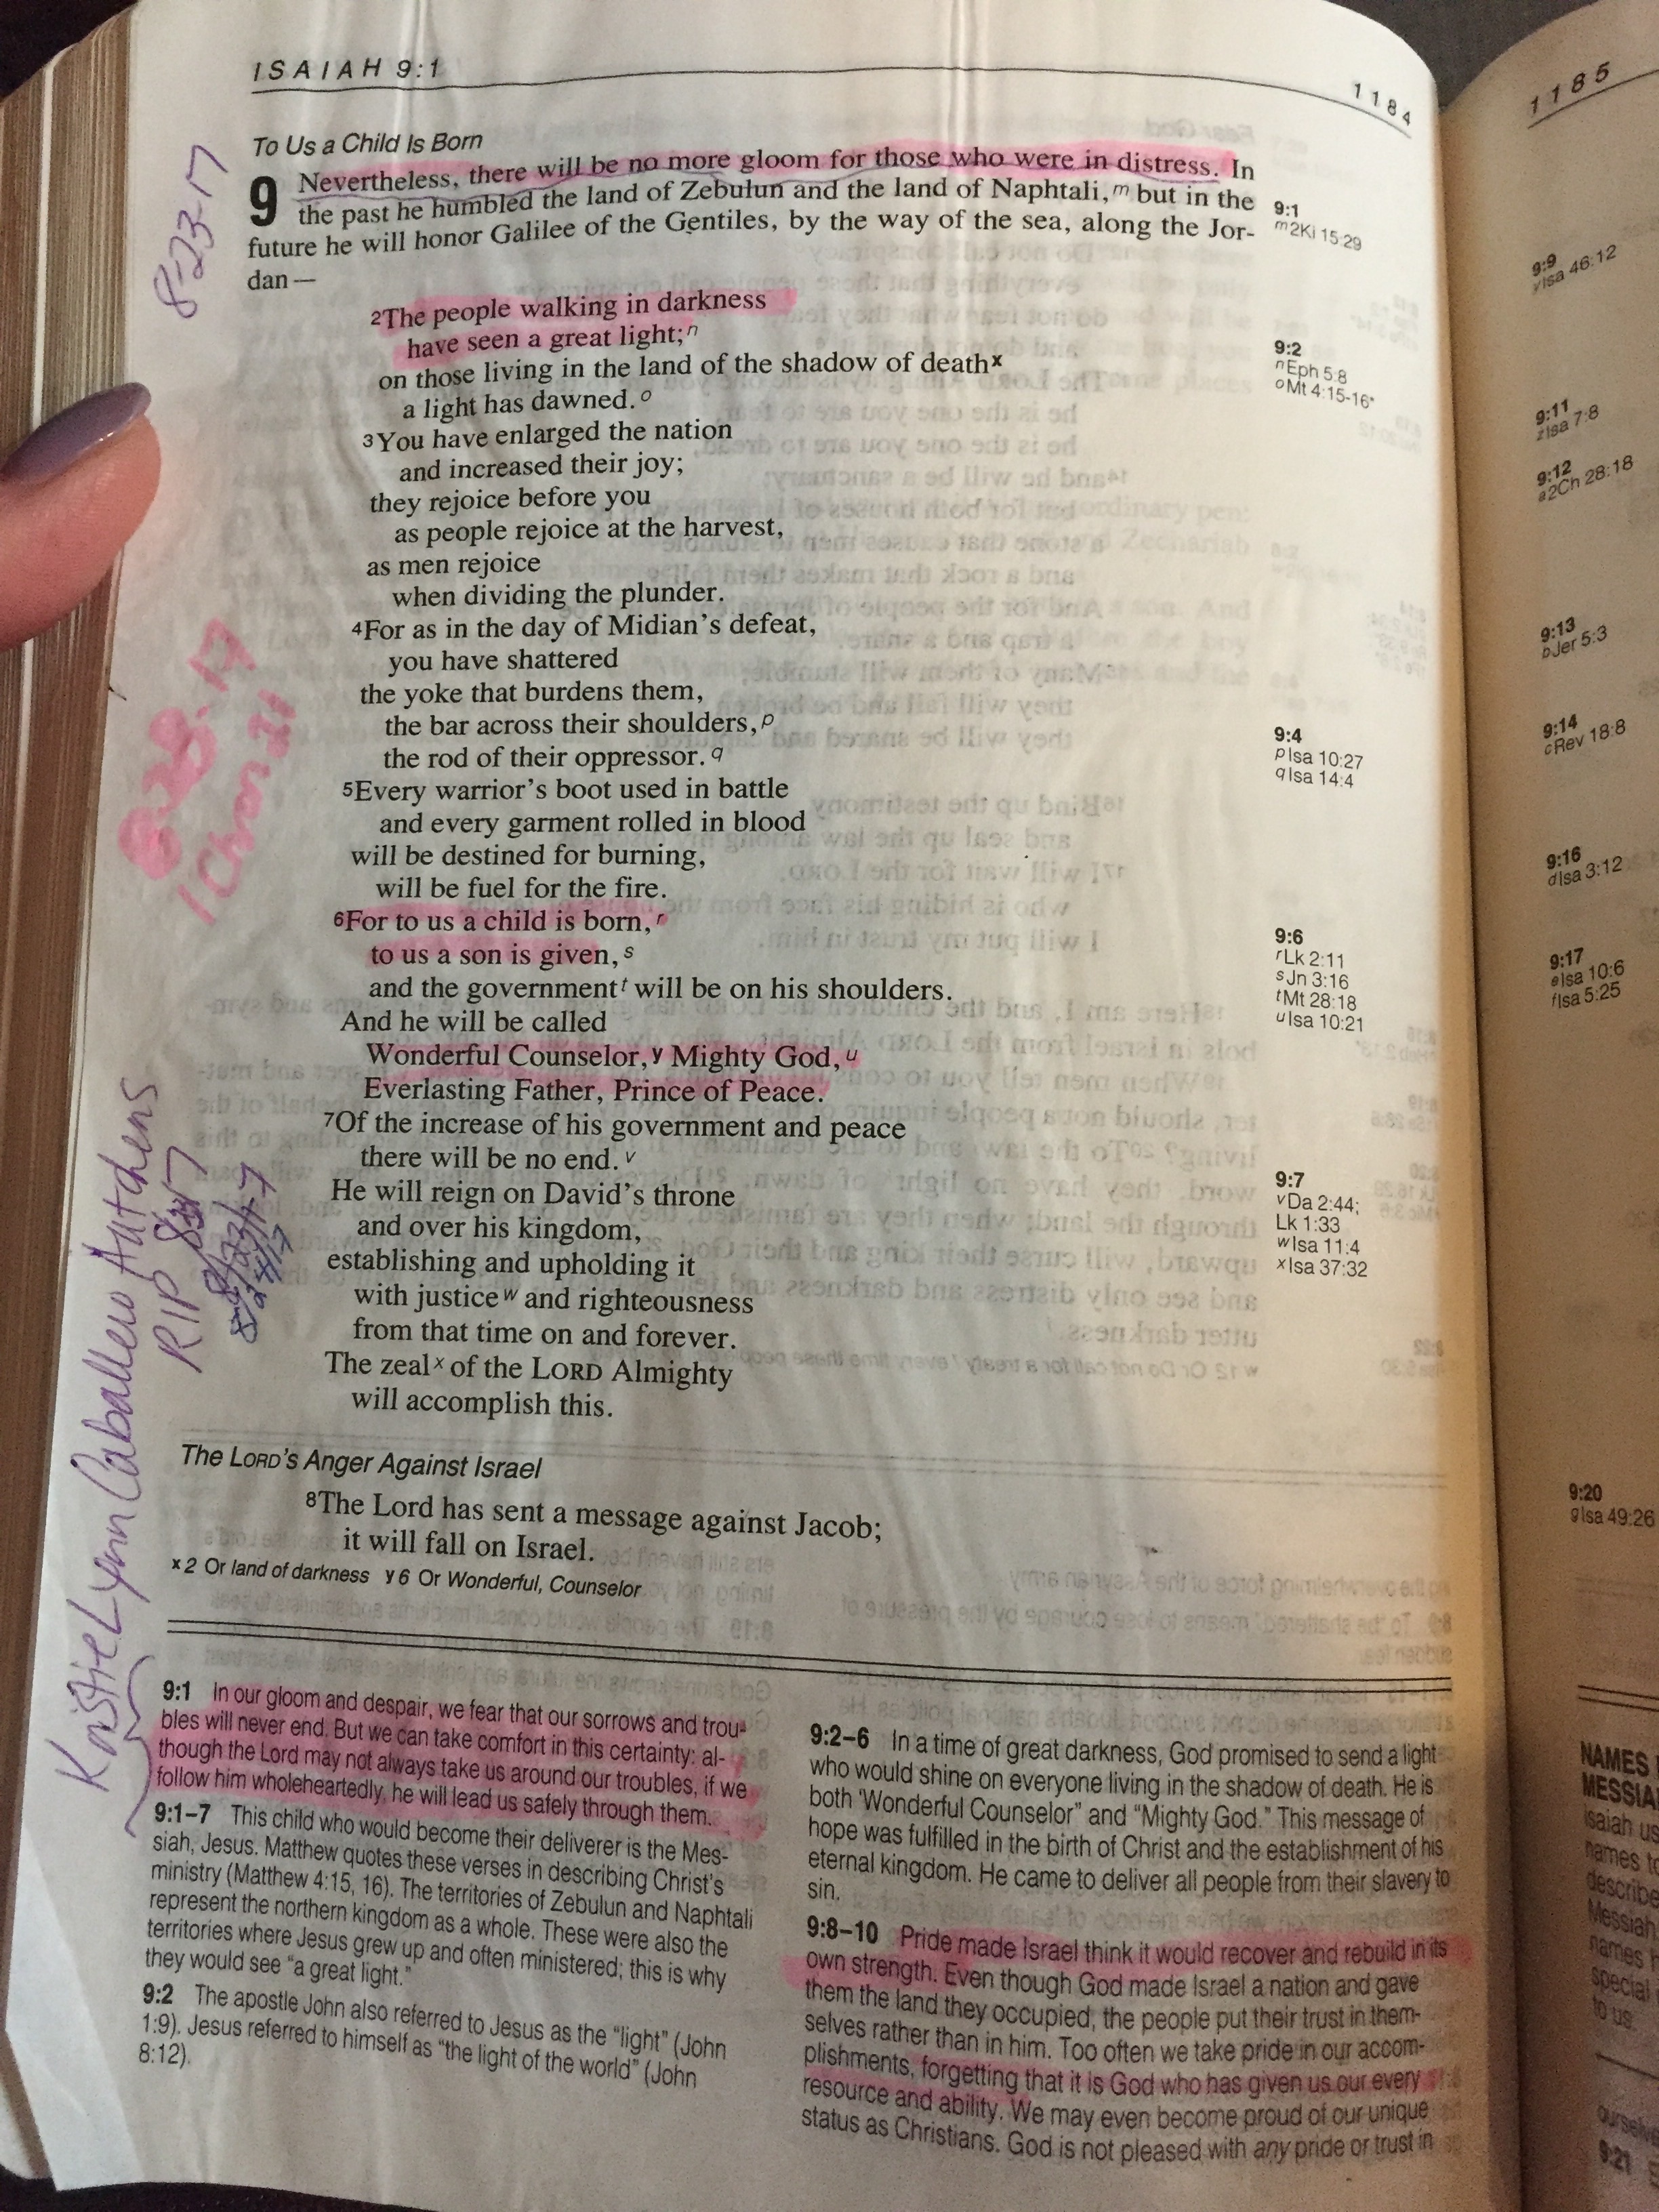 ISAIAH 9:1
1184
To Us a Child Is Born
9 Nevertheless, there will be no more gloom for those who were in distress. In
the past he humbled the land of Zebulun and the land of Naphtali, m but in the
future he will honor Galilee of the Gentiles, by the way of the sea, along the Jor-
dan—
2The people walking in darkness
have seen a great light; n
on those living in the land of the shadow of death x
a light has dawned. o
3You have enlarged the nation
and increased their joy;
they rejoice before you
as people rejoice at the harvest,
as men rejoice
when dividing the plunder.
4For as in the day of Midian's defeat,
you have shattered
the yoke that burdens them,
the bar across their shoulders, p
the rod of their oppressor. q
5Every warrior's boot used in battle
and every garment rolled in blood
will be destined for burning,
will be fuel for the fire.
6For to us a child is born, r
to us a son is given, s
and the government t will be on his shoulders.
And he will be called
Wonderful Counselor, y Mighty God, u
Everlasting Father, Prince of Peace.
7Of the increase of his government and peace
there will be no end. v
He will reign on David's throne
and over his kingdom,
establishing and upholding it
with justice w and righteousness
from that time on and forever.
The zeal x of the LORD Almighty
will accomplish this.
The LORD'S Anger Against Israel
8The Lord has sent a message against Jacob;
it will fall on Israel.
x 2 Or land of darkness y 6 Or Wonderful, Counselor
9:1
m2Ki 15:29
9:2
nEph 5:8
oMt 4:15-16*
9:4
pIsa 10:27
qIsa 14:4
9:6
rLk 2:11
sJn 3:16
tMt 28:18
uIsa 10:21
9:7
vDa 2:44;
Lk 1:33
wIsa 11:4
xIsa 37:32
8-23-17
1 Chron 21
Lynn Caballero
RIP
9:1 In our gloom and despair, we fear that our sorrows and trou-
bles will never end. But we can take comfort in this certainty: al-
though the Lord may not always take us around our troubles, if we
follow him wholeheartedly, he will lead us safely through them.
9:1–7 This child who would become their deliverer is the Mes-
siah, Jesus. Matthew quotes these verses in describing Christ's
ministry (Matthew 4:15, 16). The territories of Zebulun and Naphtali
represent the northern kingdom as a whole. These were also the
territories where Jesus grew up and often ministered; this is why
they would see "a great light."
9:2 The apostle John also referred to Jesus as the "light" (John
1:9). Jesus referred to himself as "the light of the world" (John
8:12).
9:2–6 In a time of great darkness, God promised to send a light
who would shine on everyone living in the shadow of death. He is
both 'Wonderful Counselor" and "Mighty God." This message of
hope was fulfilled in the birth of Christ and the establishment of his
eternal kingdom. He came to deliver all people from their slavery to
sin.
9:8–10 Pride made Israel think it would recover and rebuild in its
own strength. Even though God made Israel a nation and gave
them the land they occupied, the people put their trust in them-
selves rather than in him. Too often we take pride in our accom-
plishments, forgetting that it is God who has given us our every
resource and ability. We may even become proud of our unique
status as Christians. God is not pleased with any pride or trust in
1185
9:9
yIsa 46:12
9:11
zIsa 7:8
9:12
a2Ch 28:18
9:13
bJer 5:3
9:14
cRev 18:8
9:16
dIsa 3:12
9:17
eIsa 10:6
fIsa 5:25
9:20
gIsa 49:26
NAMES
MESSIA
Isaiah us
names to
describe
Messiah
names h
special
to us.
ourselve
9:21